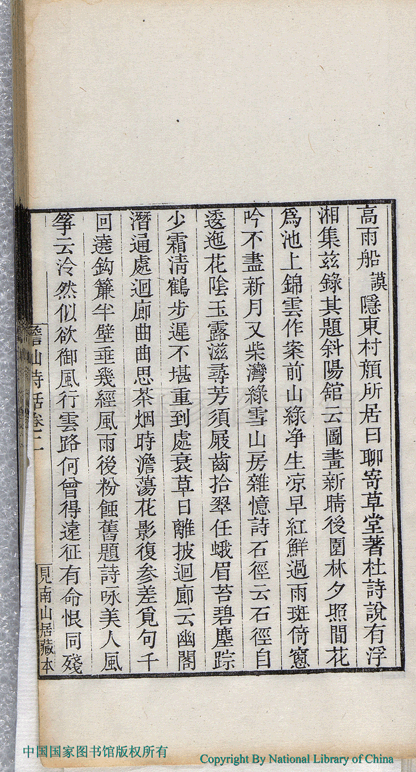 高雨船謨隱東村顏所居曰聊寄草堂著杜詩說有浮
湘集茲錄其題斜陽舘云圖畫新晴後園林夕照間花
爲池上錦雲作案前山綠净生凉早紅鮮過雨斑倚窻
吟不盡新月又柴灣綠雪山房雜憶詩石徑云石徑自
逶迤花陰玉露滋尋芳須屐齒拾翠任蛾眉苔碧塵踪
少霜清鶴步遲不堪重到處衰草日離披迴廊云幽閣
潛通處迴廊曲曲思茶烟時澹蕩花影復參差覓句千
回遶鈎簾半壁垂幾經風雨後粉蝕舊題詩咏美人風
箏云泠然似欲御風行雲路何曾得遠征有命恨同殘
山詩話卷二
見南山居藏本
中国国家图书馆版权所有
Copyright By National Library of China